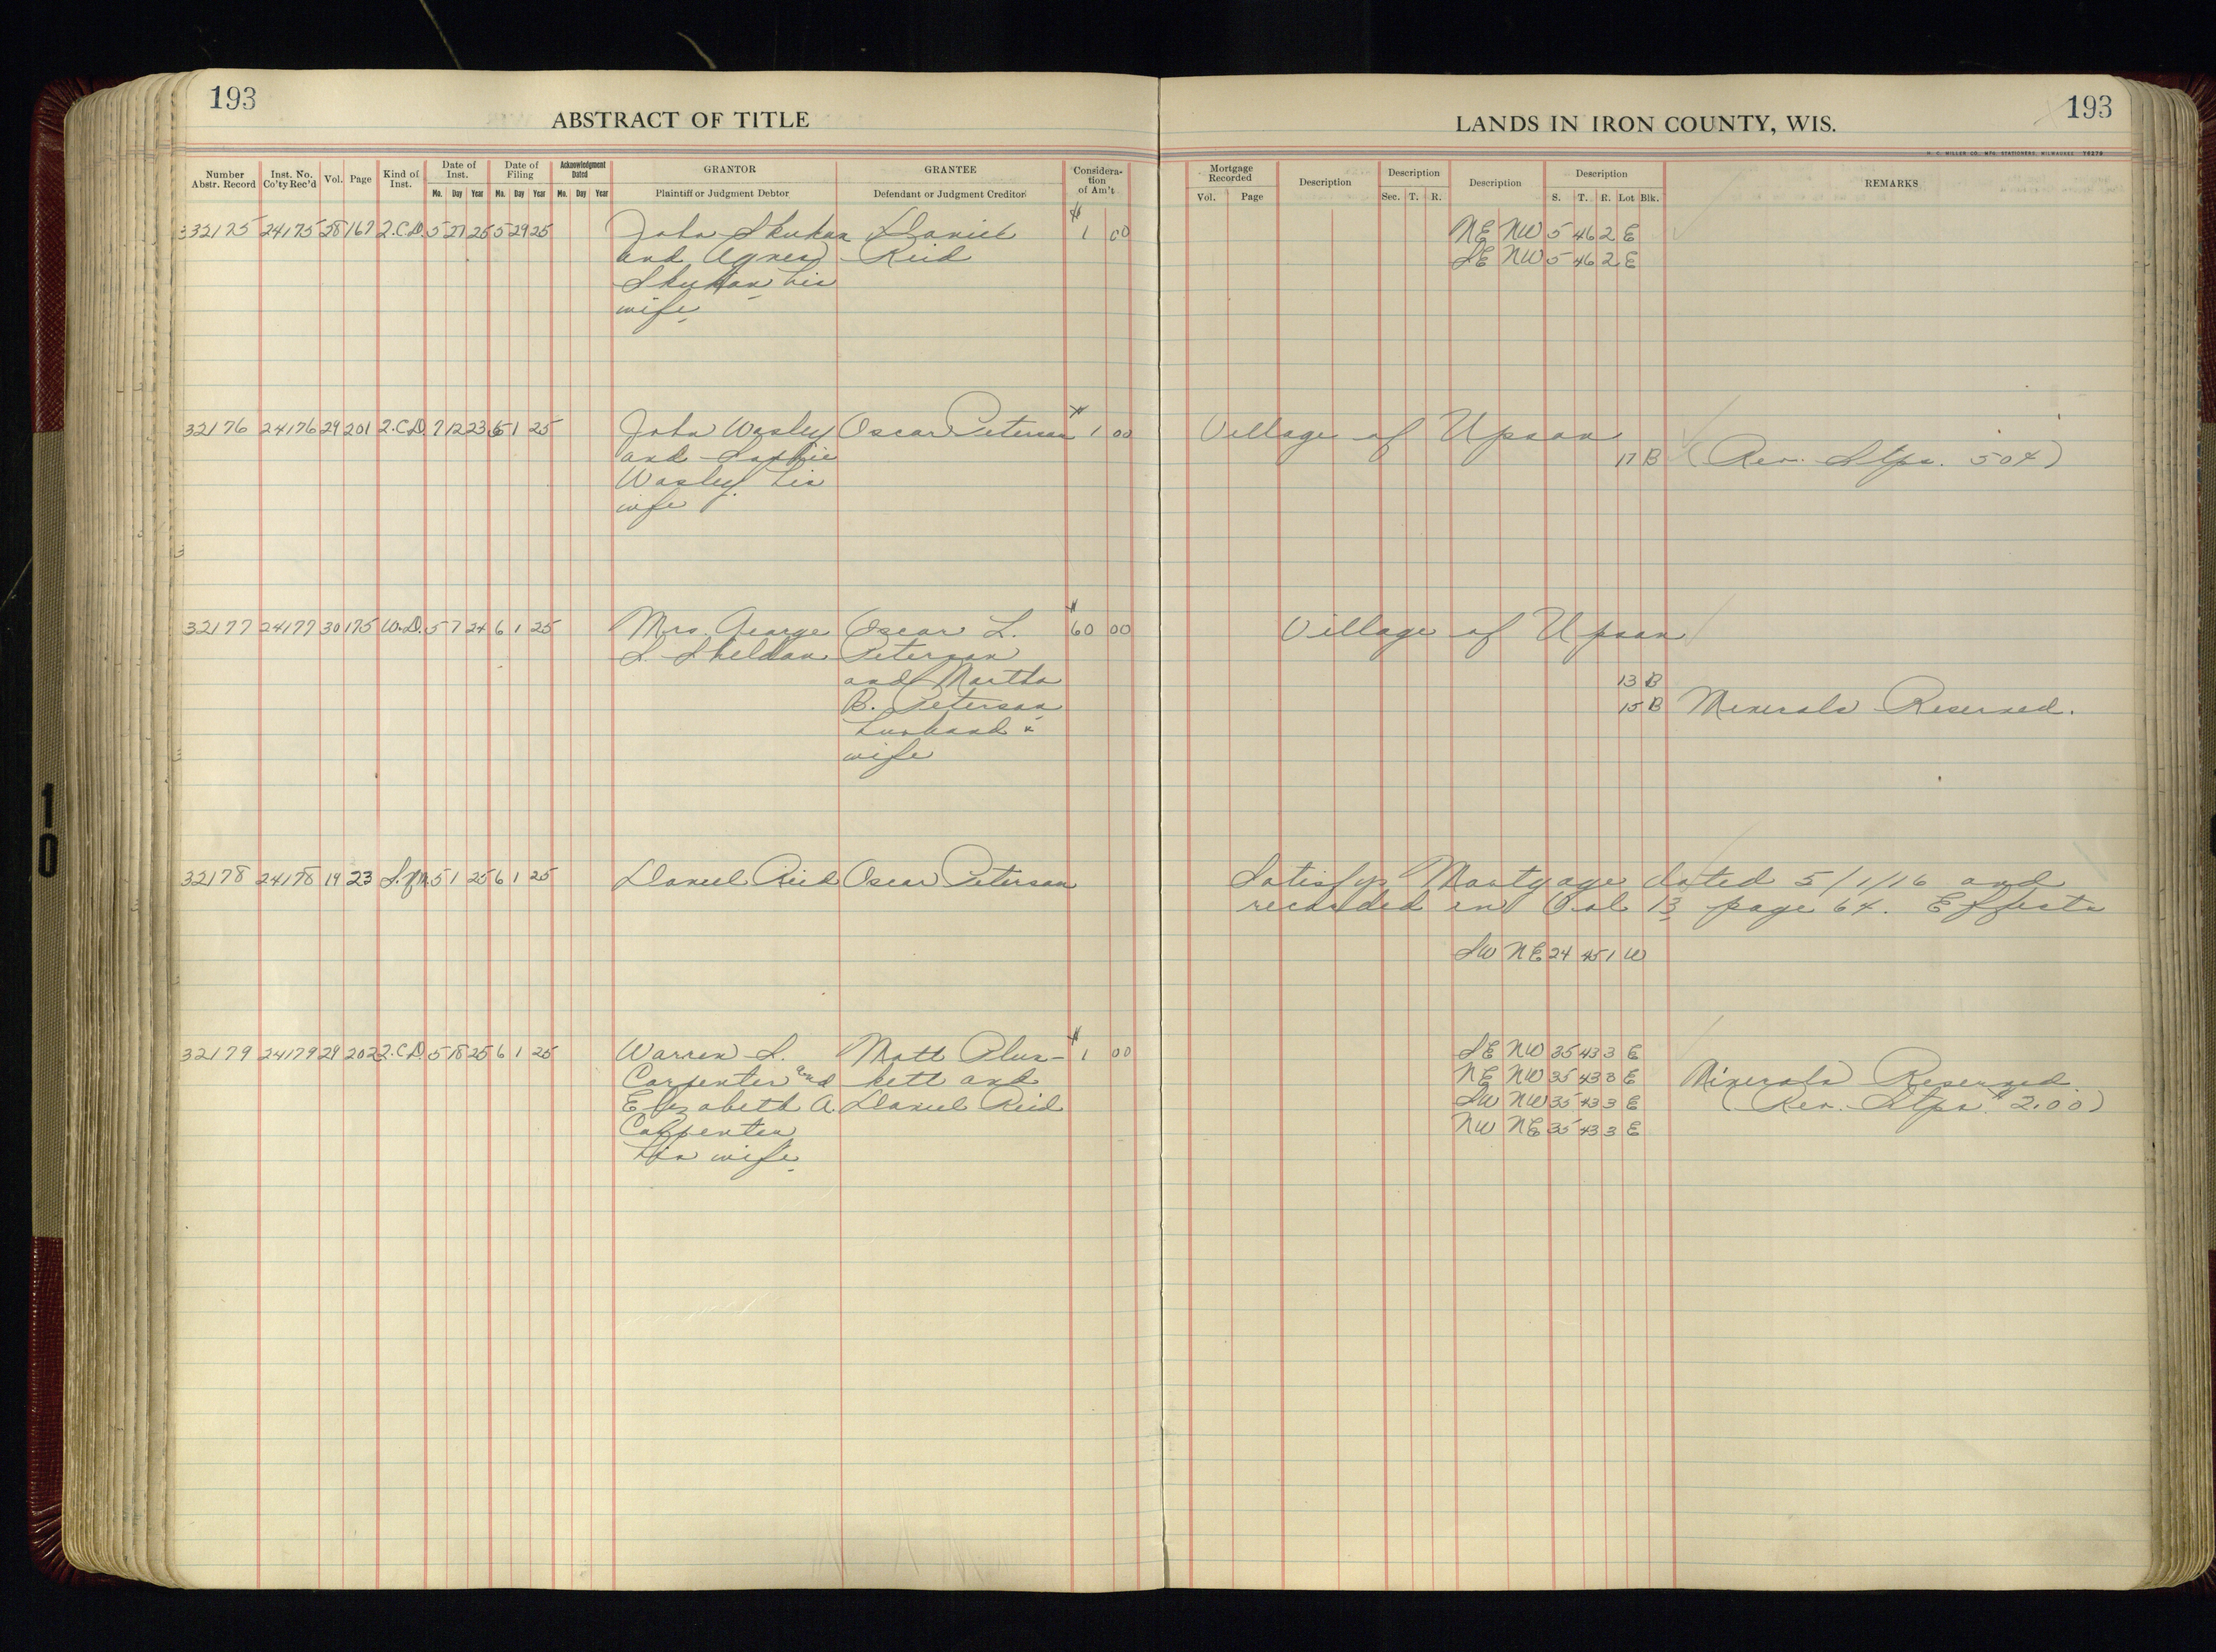 193
ABSTRACT OF TITLE
Number Abstr. Record
Inst. No. Co'ty Rec'd
Vol.
Page
Kind of Inst.
Date of Inst.
Mo. Day Year
Date of Filing
Mo. Day Year
Acknowledgment Dated
Mo. Day Year
GRANTOR
Plaintiff or Judgment Debtor
GRANTEE
Defendant or Judgment Creditor
Consideration of Am't
32175 24175 28 167 2.C.D. 5 27 25 5 29 25 John Skuhan Daniel $ 1 00
and Agnes Reid
Skuhan his
wife.
32176 24176 29 201 2.C.D. 7 12 23 6 1 25 John Wasley Oscar Peterson $ 1 00
and Sophie
Wasley his
wife
32177 24177 30 175 W.D. 5 7 24 6 1 25 Mrs George Oscar L. $ 60 00
L. Sheldon Peterson
and Martha
B. Peterson
husband &
wife
32178 24178 19 23 S.of M. 5 1 25 6 1 25 Daniel Reid Oscar Peterson
32179 24179 29 202 2.C.D. 5 18 25 6 1 25 Warren S. Matt Plun- $ 1 00
Carpenter and kett and
Elizabeth A. Daniel Reid
Carpenter
his wife.
193
LANDS IN IRON COUNTY, WIS.
H. C. MILLER CO., MFG. STATIONERS, MILWAUKEE
Mortgage Recorded
Vol. Page
Description
Description
Sec. T. R.
Description
Description
S. T. R. Lot Blk.
REMARKS
NE NW 5 46 2 E
SE NW 5 46 2 E
Village of Upson
17 B (Rev. Stps. 50¢)
Village of Upson
13 B
15 B Minerals Reserved.
Satisfys Mortgage dated 5/1/16 and
recorded in Vol 13 page 64. Effects
SW NE 24 45 1 W
SE NW 35 43 3 E
NE NW 35 43 3 E Minerals Reserved.
SW NW 35 43 3 E (Rev. Stps. $2.00)
NW NE 35 43 3 E